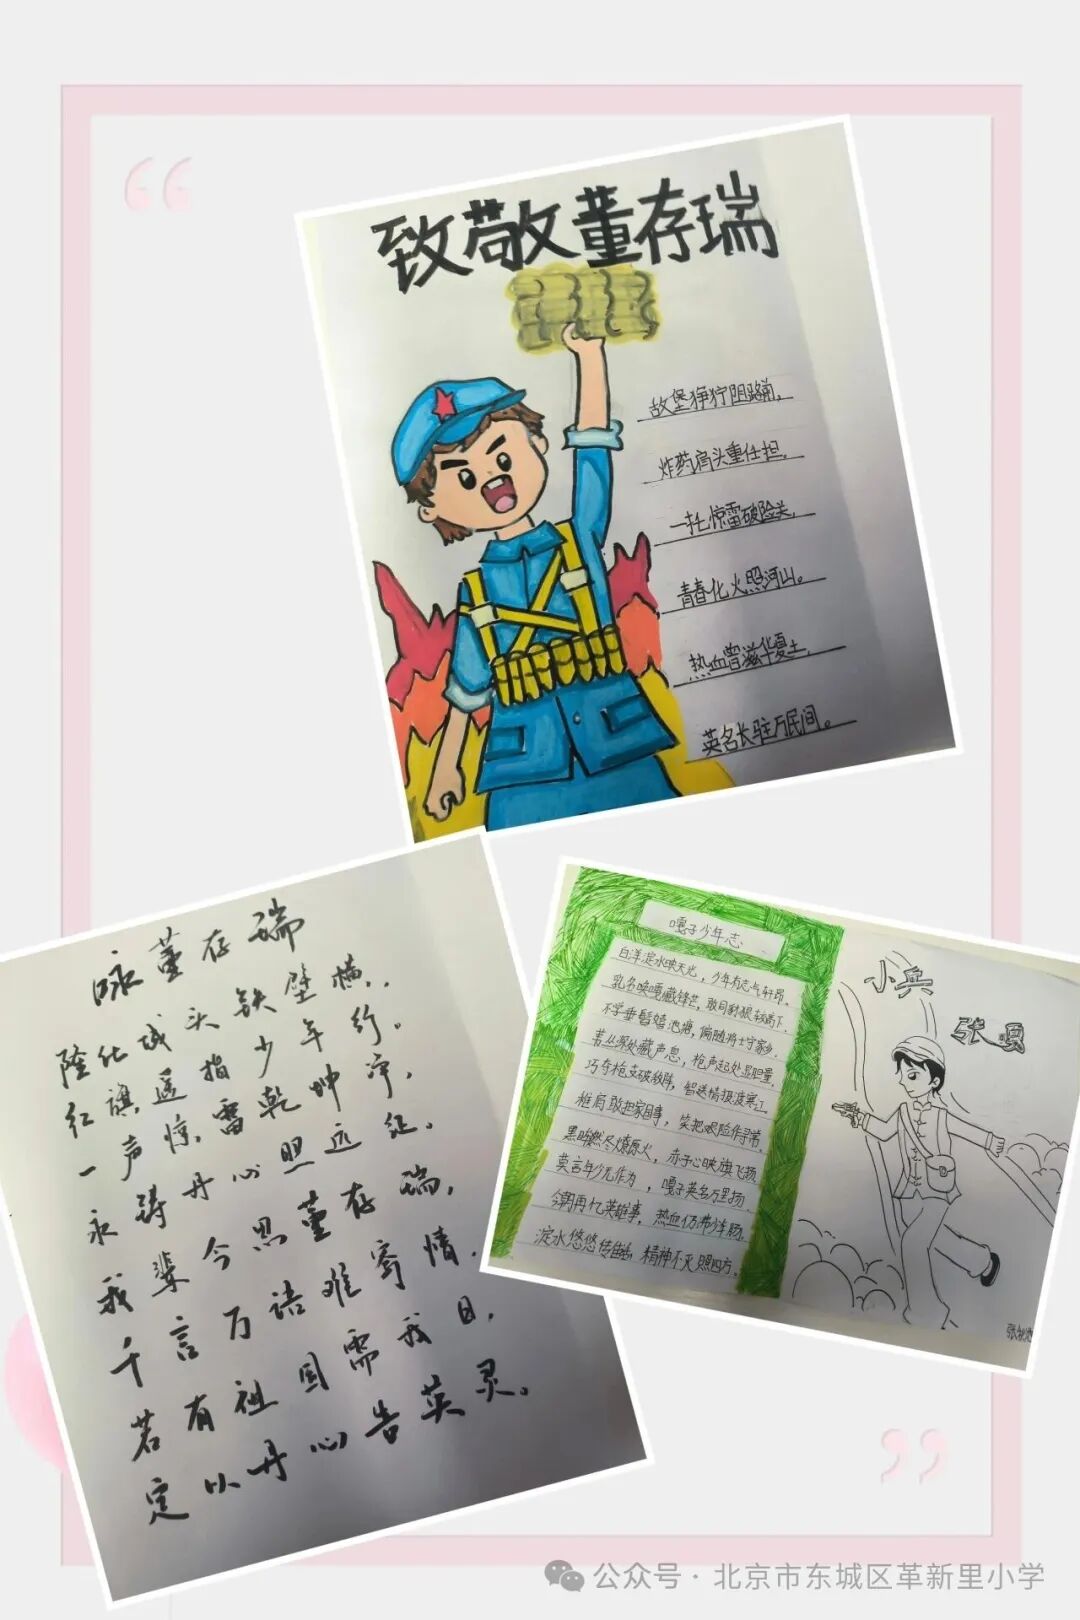 致敬董存瑞
故堡狰狞阻蹝前，
炸药肩头重任担。
一托惊雷破险关，
青春化火照河山。
热血曾滋华夏土，
英名长驻万民间。
咏董存瑞
隆化城头铁壁横，
红旗遥指少年行。
一声惊雷乾坤净，
永铸丹心照远征。
我辈今思董存瑞，
千言万语难寄情。
若有祖国需我日，
定以丹心告英灵。
嘎子少年志
白洋淀水映天光，少年有志气轩昂。
乳名唤嘎藏锋芒，敢同豺狼较高下。
不学垂髫嬉池塘，偏随将士守家乡。
苇丛深处藏声息，枪声起处显胆量。
巧夺枪支破敌阵，智送情报渡寒江。
稚肩敢担家国事，笑把艰险作寻常。
黑眸燃尽燎原火，赤子心映旗飞扬
莫言年少无作为，嘎子英名万里扬
今朝再忆英雄事，热血仍沸诗肠
淀水悠悠传佳话 精神不灭照四方。
小兵
张嘎
公众号·北京市东城区革新里小学